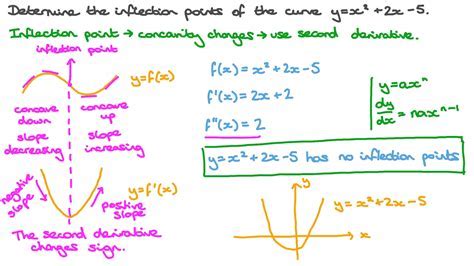 Determine the inflection points of the curve y=x² + 2x - 5.
Inflection point → concavity changes → use second derivative.
inflection point
y=f(x)
concave down
concave up
slope decreasing
slope increasing
negative slope
positive slope
y=f'(x)
The second derivative changes sign.
f(x) = x² + 2x - 5
f'(x) = 2x + 2
f"(x) = 2
y = axⁿ
dy/dx = naxⁿ⁻¹
y = x² + 2x - 5 has no inflection points
y
x
y = x² + 2x - 5